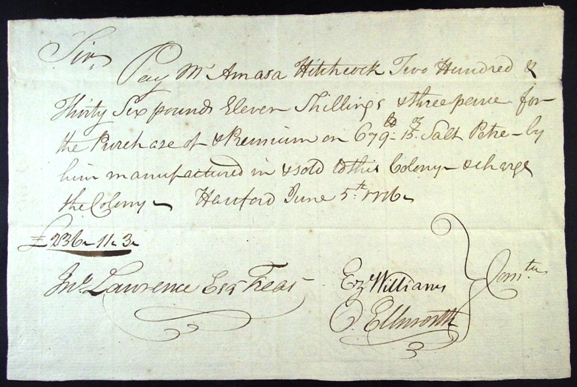 Sir,
Pay Mr. Amasa Hitchcock Two Hundred &
Thirty Six pounds Eleven Shillings & three pence for
the Purchase of & Premium on 679 lb Salt Petre by
him manufactured in & sold to this Colony & charge
the Colony Hartford June 5th 1776
£236-11-3
Jno Lawrence Esqr Treasr
Ez Williams
O. Ellsworth
Comtee